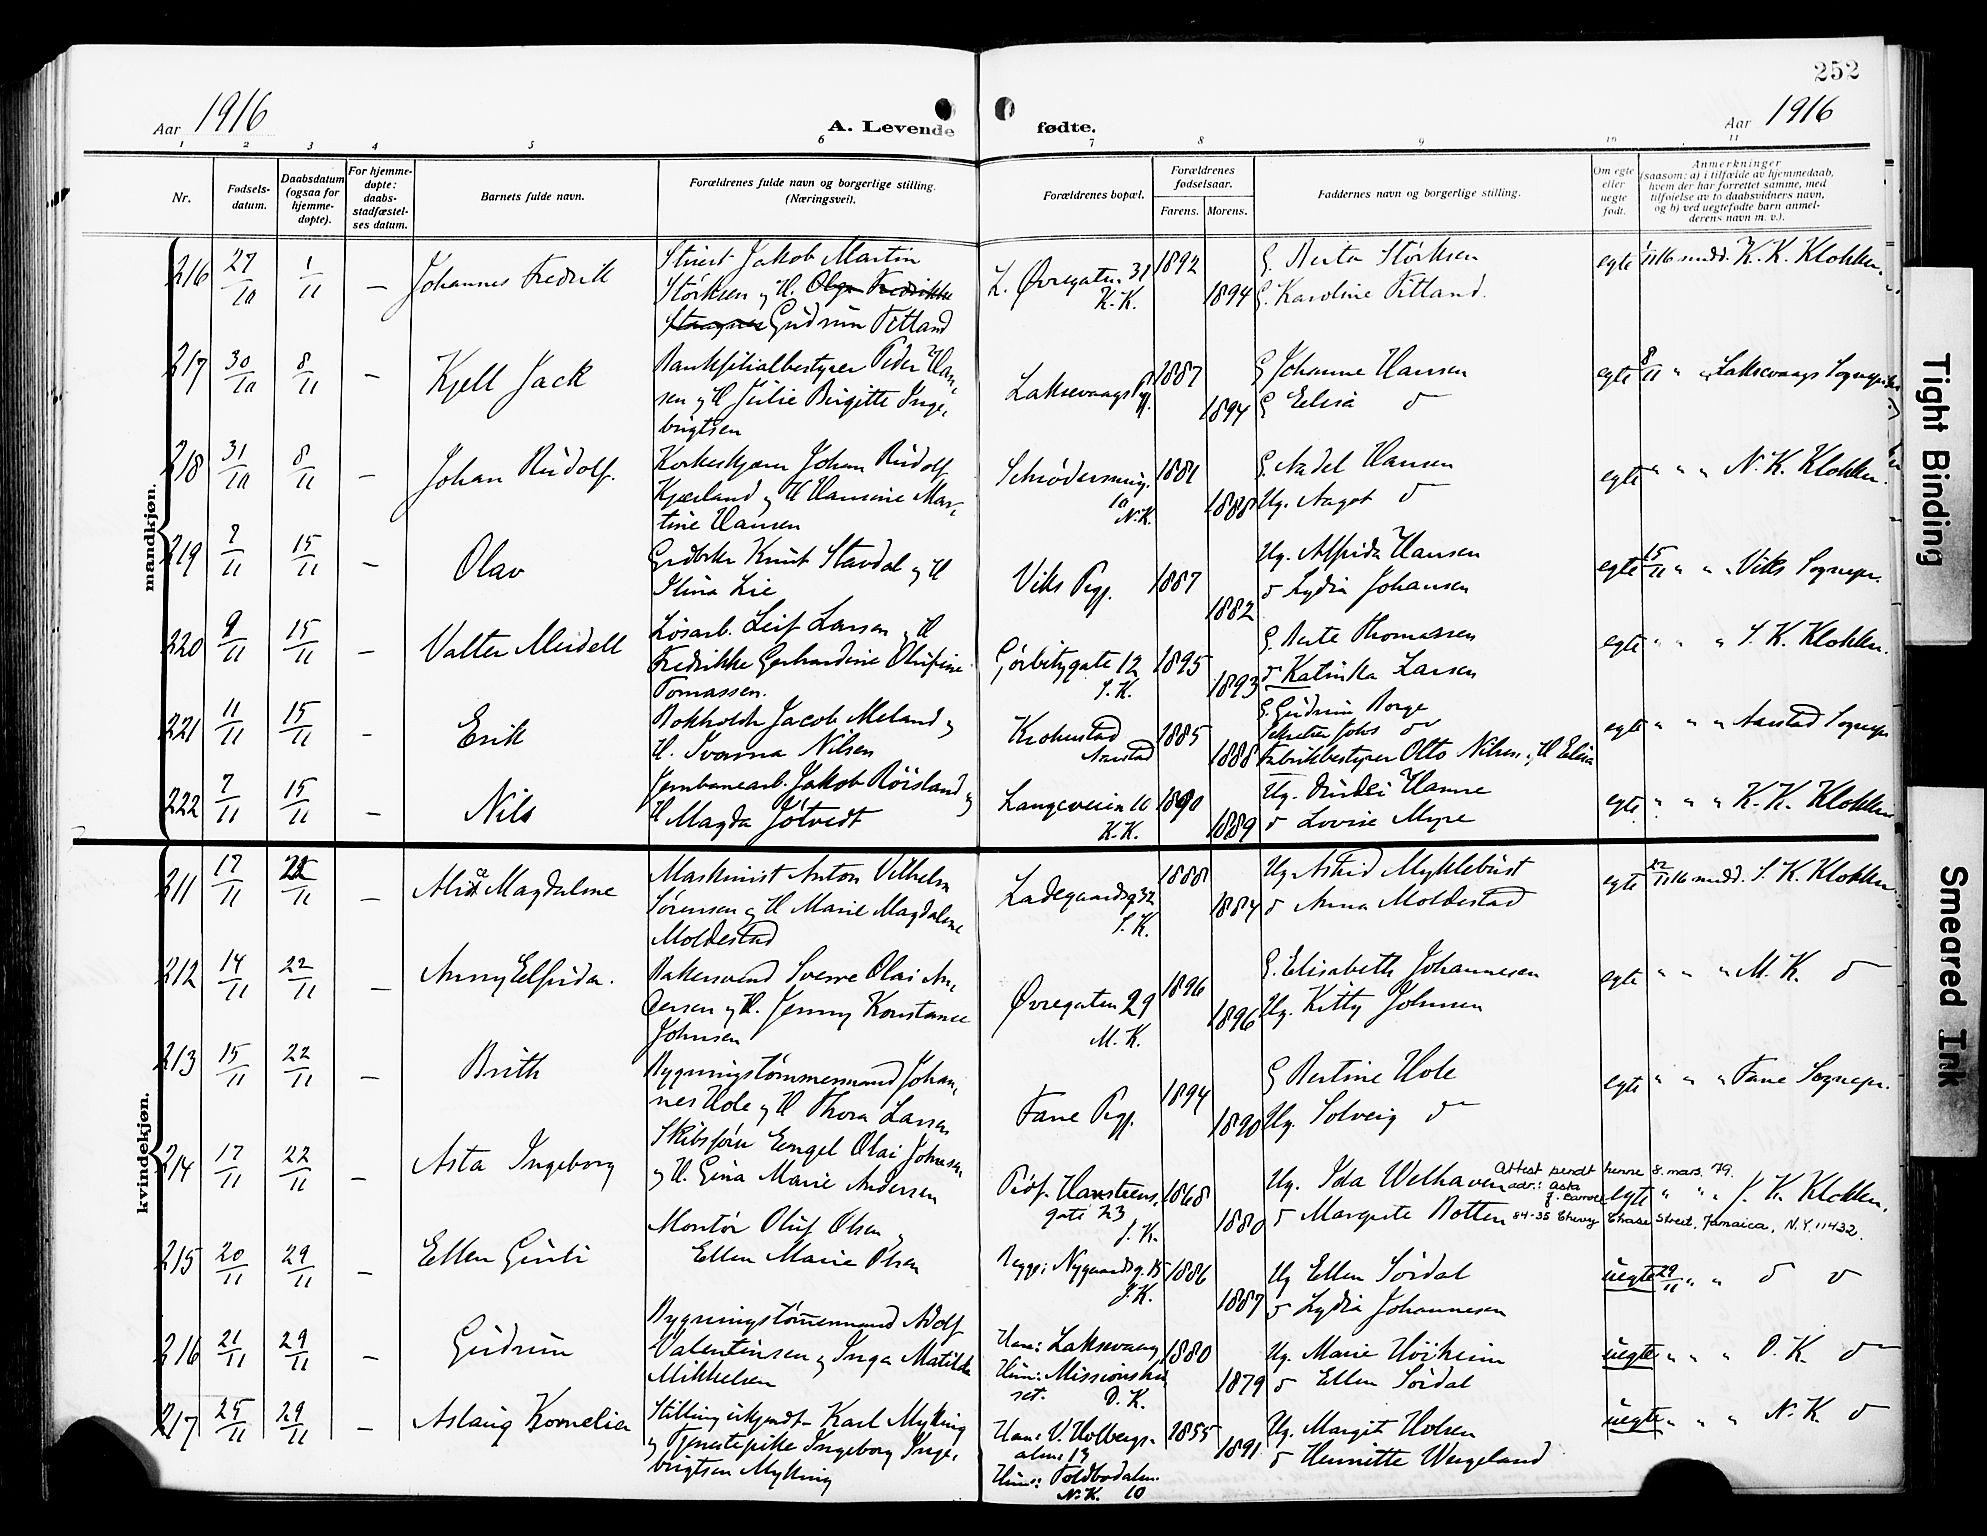 252
Aar 1916
A. Levende fødte.
Aar 1916
1 2 3 4 5 6 7 8 9 10 11
Nr.
Fødsels-
datum.
Daabsdatum
(ogsaa for
hjemme-
døpte).
For hjemme-
døpte:
daabs-
stadfæstel-
ses datum.
Barnets fulde navn.
Forældrenes fulde navn og borgerlige stilling.
(Næringsvei).
Forældrenes bopæl.
Forældrenes
fødselsaar.
Farens. Morens.
Faddernes navn og borgerlige stilling.
Om egte
eller
uegte
født.
Anmerkninger
(saasom: a) i tilfælde av hjemmedaab,
hvem der har forrettet samme, med
tilføielse av to daabsvidners navn,
og b) ved uegtefødte barn anmel-
derens navn m. v.).
mandkjøn.
216 27/10 1/11 — Johannes Fredrik
Stuert Jakob Martin
Størksen og H. Olga Fredrikke
Gudrun Fitland
L. Øvregaten 31
K.K.
1892 1894
G. Berta Størksen
G. Karoline Fitland.
egte 1/11 16 medd. K. K. Klokker.
217 30/10 8/11 — Kjell Jack
Bankfilialbestyrer Peder Han-
sen og H Julie Birgitte Inge-
brigtsen
Laksevaags Pgj.
1887 1894
G Johanne Hansen
G Elisa d
egte 8/11 " " Laksevaags Sognepr.
218 31/10 8/11 — Johan Rudolf.
Korkeskjærer Johan Rudolf
Kjærland og H Hansine Mar-
tine Hansen
Schrødersmug.
10
N.K.
1881 1888
G. Aadel Hansen
Ug. Aagot d
egte " " " N. K. Klokker.
219 2/11 15/11 — Olav
Gaardbrker Knut Stavdal og H
Stina Lie
Viks Pgj.
1887 1882
Ug. Alfrida Hansen
d Lydia Johansen
egte 15/11 " " Viks Sognepr.
220 9/11 15/11 — Valter Meidell
Løsarb. Leif Larsen og H
Fredrikke Gerhardine Olufine
Tomassen.
Gørbitzgate 12
S.K.
1895 1893
G. Berte Thomassen
d Katinka Larsen
egte " " " S. K. Klokker.
221 11/11 15/11 — Erik
Bokholder Jacob Meland og
H. Ivanna Nilsen
Krohnstad
Aarstad
1885 1888
G. Gudrun Borge
Sekretær Johs d
Fabrikbestyrer Otto Nilsen og H Elisa
egte " " " Aarstad Sognepr
222 7/11 15/11 — Nils
Jernbanearb. Jakob Røisland og
H Magda Jøtvedt
Langeveien 10
K.K.
1890 1889
Ug. Hamre
d Lovise Myre
egte " " " K. K. Klokker
kvindekjøn.
211 17/11 22/11 — Alice Magdalene
Maskinist Anton Vilhelm
Sørensen og H Marie Magdalene
Moldestad
Ladegaardsg. 32
S.K.
1888 1884
Ug Astrid Myklebust
d Anna Moldestad
egte 22/11 16 medd. S. K. Klokker.
212 14/11 22/11 — Anny Elfrida.
Bakersvend Sverre Olai An-
dersen og H. Jenny Konstance
Johnsen
Øvregaten 29
M.K.
1896 1896
G. Elisabeth Johannesen
Ug. Kitty Johnsen
egte " " " M. K. d
213 15/11 22/11 — Brith
Bygningstømmermand Johan-
nes Hole og H Thora Larsen
Fane Pgj.
1894 1890
G Bertine Hole
Ug. Solveig d
egte " " " Fane Sognepr.
214 17/11 22/11 — Asta Ingeborg
Skibsfører Engel Olai Johnsen
og H. Gina Marie Andersen
Prof. Hansteens-
gate 23
J.K.
1868 1880
Ug. Ida Welhaven
d Margrete Botten
Attest sendt henne 8. mars. 79.
adr.: Asta
J. Carroll
84-35 Chevy Chase Street, Jamaica, N.Y. 11432.
egte " " " J. K. Klokker.
215 20/11 29/11 — Ellen Gurli
Montør Oluf Olsen og
Ellen Marie Olsen
Begge: Nygaardsg. 15
J.K.
1886 1887
Ug Ellen Sørdal
d Lydia Johannesen
uegte 29/11 " " d d
216 21/11 29/11 — Gudrun
Bygningstømmermand Adolf
Valentinsen og Inga Matilde
Mikkelsen
Han: Laksevaag
Hun: Missionshu-
set. D.K.
1880 1879
Ug. Marie Høiheim
d Ellen Sørdal
uegte " " " D. K. d
217 25/11 29/11 — Aslaug Kornelia
Stilling ukjendt Karl Myking
og Tjenestepike Ingeborg Inge-
brigtsen Myking
Han: V. Holbergs-
alm. 13
Hun: Toldbodalm.
N.K. 10
1855 1891
Ug. Margit Holsen
d Henriette Wergeland
uegte " " " N. K. d
Tight Binding
Smeared Ink